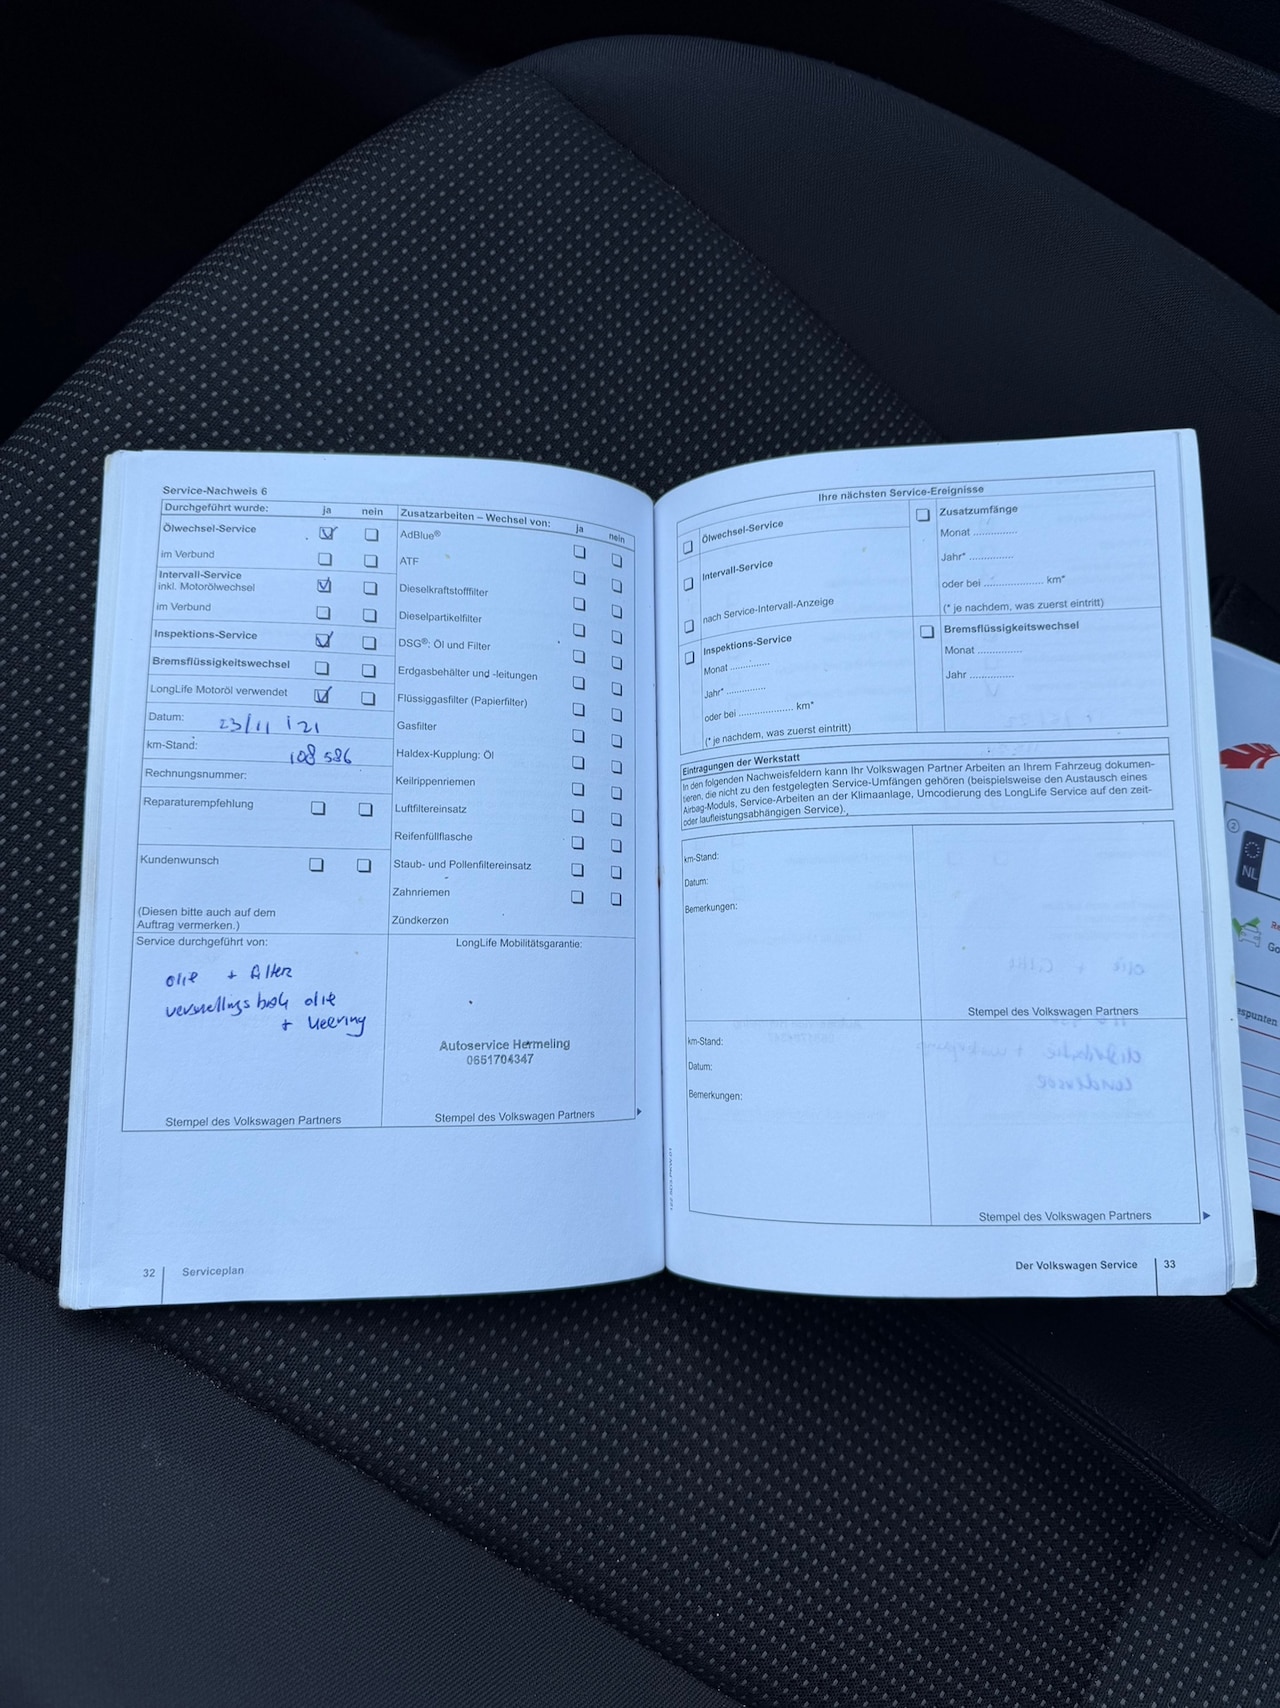 Service-Nachweis 6
Durchgeführt wurde: ja nein
Ölwechsel-Service
im Verbund
Intervall-Service
inkl. Motorölwechsel
im Verbund
Inspektions-Service
Bremsflüssigkeitswechsel
LongLife Motoröl verwendet
Datum: 23/11 / 21
km-Stand: 108 586
Rechnungsnummer:
Reparaturempfehlung
Kundenwunsch
(Diesen bitte auch auf dem
Auftrag vermerken.)
Zusatzarbeiten – Wechsel von: ja nein
AdBlue®
ATF
Dieselkraftstofffilter
Dieselpartikelfilter
DSG®: Öl und Filter
Erdgasbehälter und -leitungen
Flüssiggasfilter (Papierfilter)
Gasfilter
Haldex-Kupplung: Öl
Keilrippenriemen
Luftfiltereinsatz
Reifenfüllflasche
Staub- und Pollenfiltereinsatz
Zahnriemen
Zündkerzen
Service durchgeführt von:
olie + filter
versnellingsbak olie
+ keering
Stempel des Volkswagen Partners
LongLife Mobilitätsgarantie:
Autoservice Hermeling
0651704347
Stempel des Volkswagen Partners
32 Serviceplan
Ihre nächsten Service-Ereignisse
Ölwechsel-Service
Intervall-Service
nach Service-Intervall-Anzeige
Inspektions-Service
Monat ..............
Jahr* ..............
oder bei .................... km*
(* je nachdem, was zuerst eintritt)
Zusatzumfänge
Monat ..............
Jahr* ..............
oder bei .................... km*
(* je nachdem, was zuerst eintritt)
Bremsflüssigkeitswechsel
Monat ..............
Jahr ..............
Eintragungen der Werkstatt
In den folgenden Nachweisfeldern kann Ihr Volkswagen Partner Arbeiten an Ihrem Fahrzeug dokumen-
tieren, die nicht zu den festgelegten Service-Umfängen gehören (beispielsweise den Austausch eines
Airbag-Moduls, Service-Arbeiten an der Klimaanlage, Umcodierung des LongLife Service auf den zeit-
oder laufleistungsabhängigen Service).
km-Stand:
Datum:
Bemerkungen:
Stempel des Volkswagen Partners
km-Stand:
Datum:
Bemerkungen:
Stempel des Volkswagen Partners
Der Volkswagen Service 33
2
NL